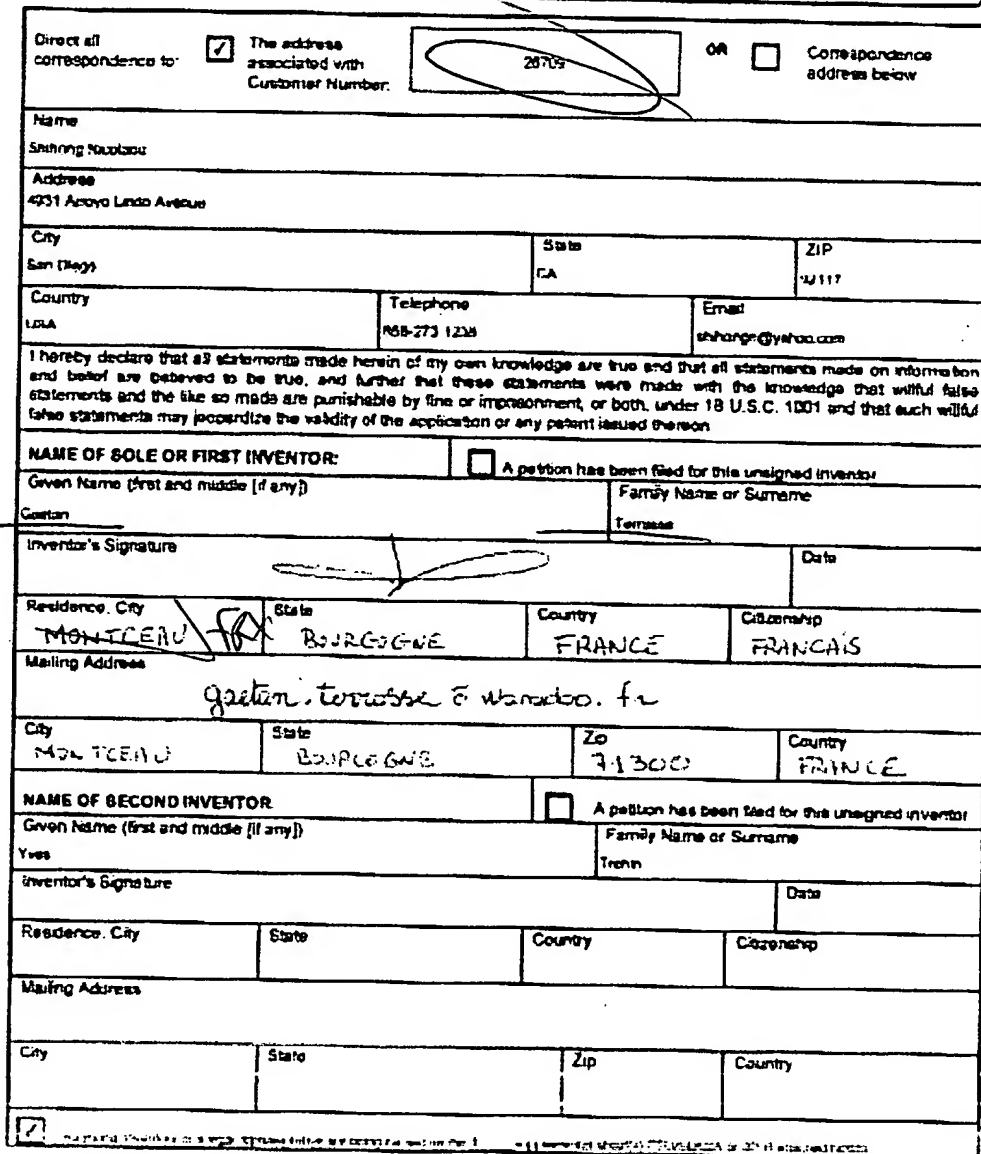 Direct all correspondence to:
The address associated with Customer Number:
26709
OR
Correspondence address below
Name
Address
4931 Arroyo Lindo Avenue
City
San Diego
State
CA
ZIP
92117
Country
USA
Telephone
858-273 1238
Email
shihange@yahoo.com
I hereby declare that all statements made herein of my own knowledge are true and that all statements made on information
and belief are believed to be true, and further that these statements were made with the knowledge that willful false
statements and the like so made are punishable by fine or imprisonment, or both, under 18 U.S.C. 1001 and that such willful
false statements may jeopardize the validity of the application or any patent issued thereon
NAME OF SOLE OR FIRST INVENTOR:
A petition has been filed for this unsigned inventor
Given Name (first and middle [if any])
Gaetan
Family Name or Surname
Terrasse
Inventor's Signature
Date
Residence, City
MONTCEAU
State
BOURGOGNE
Country
FRANCE
Citizenship
FRANCAIS
Mailing Address
gaetan.terrasse @ wanadoo.fr
City
MONTCEAU
State
BOURGOGNE
Zip
71300
Country
FRANCE
NAME OF SECOND INVENTOR
A petition has been filed for this unsigned inventor
Given Name (first and middle [if any])
Yves
Family Name or Surname
Inventor's Signature
Date
Residence, City
State
Country
Citizenship
Mailing Address
City
State
Zip
Country